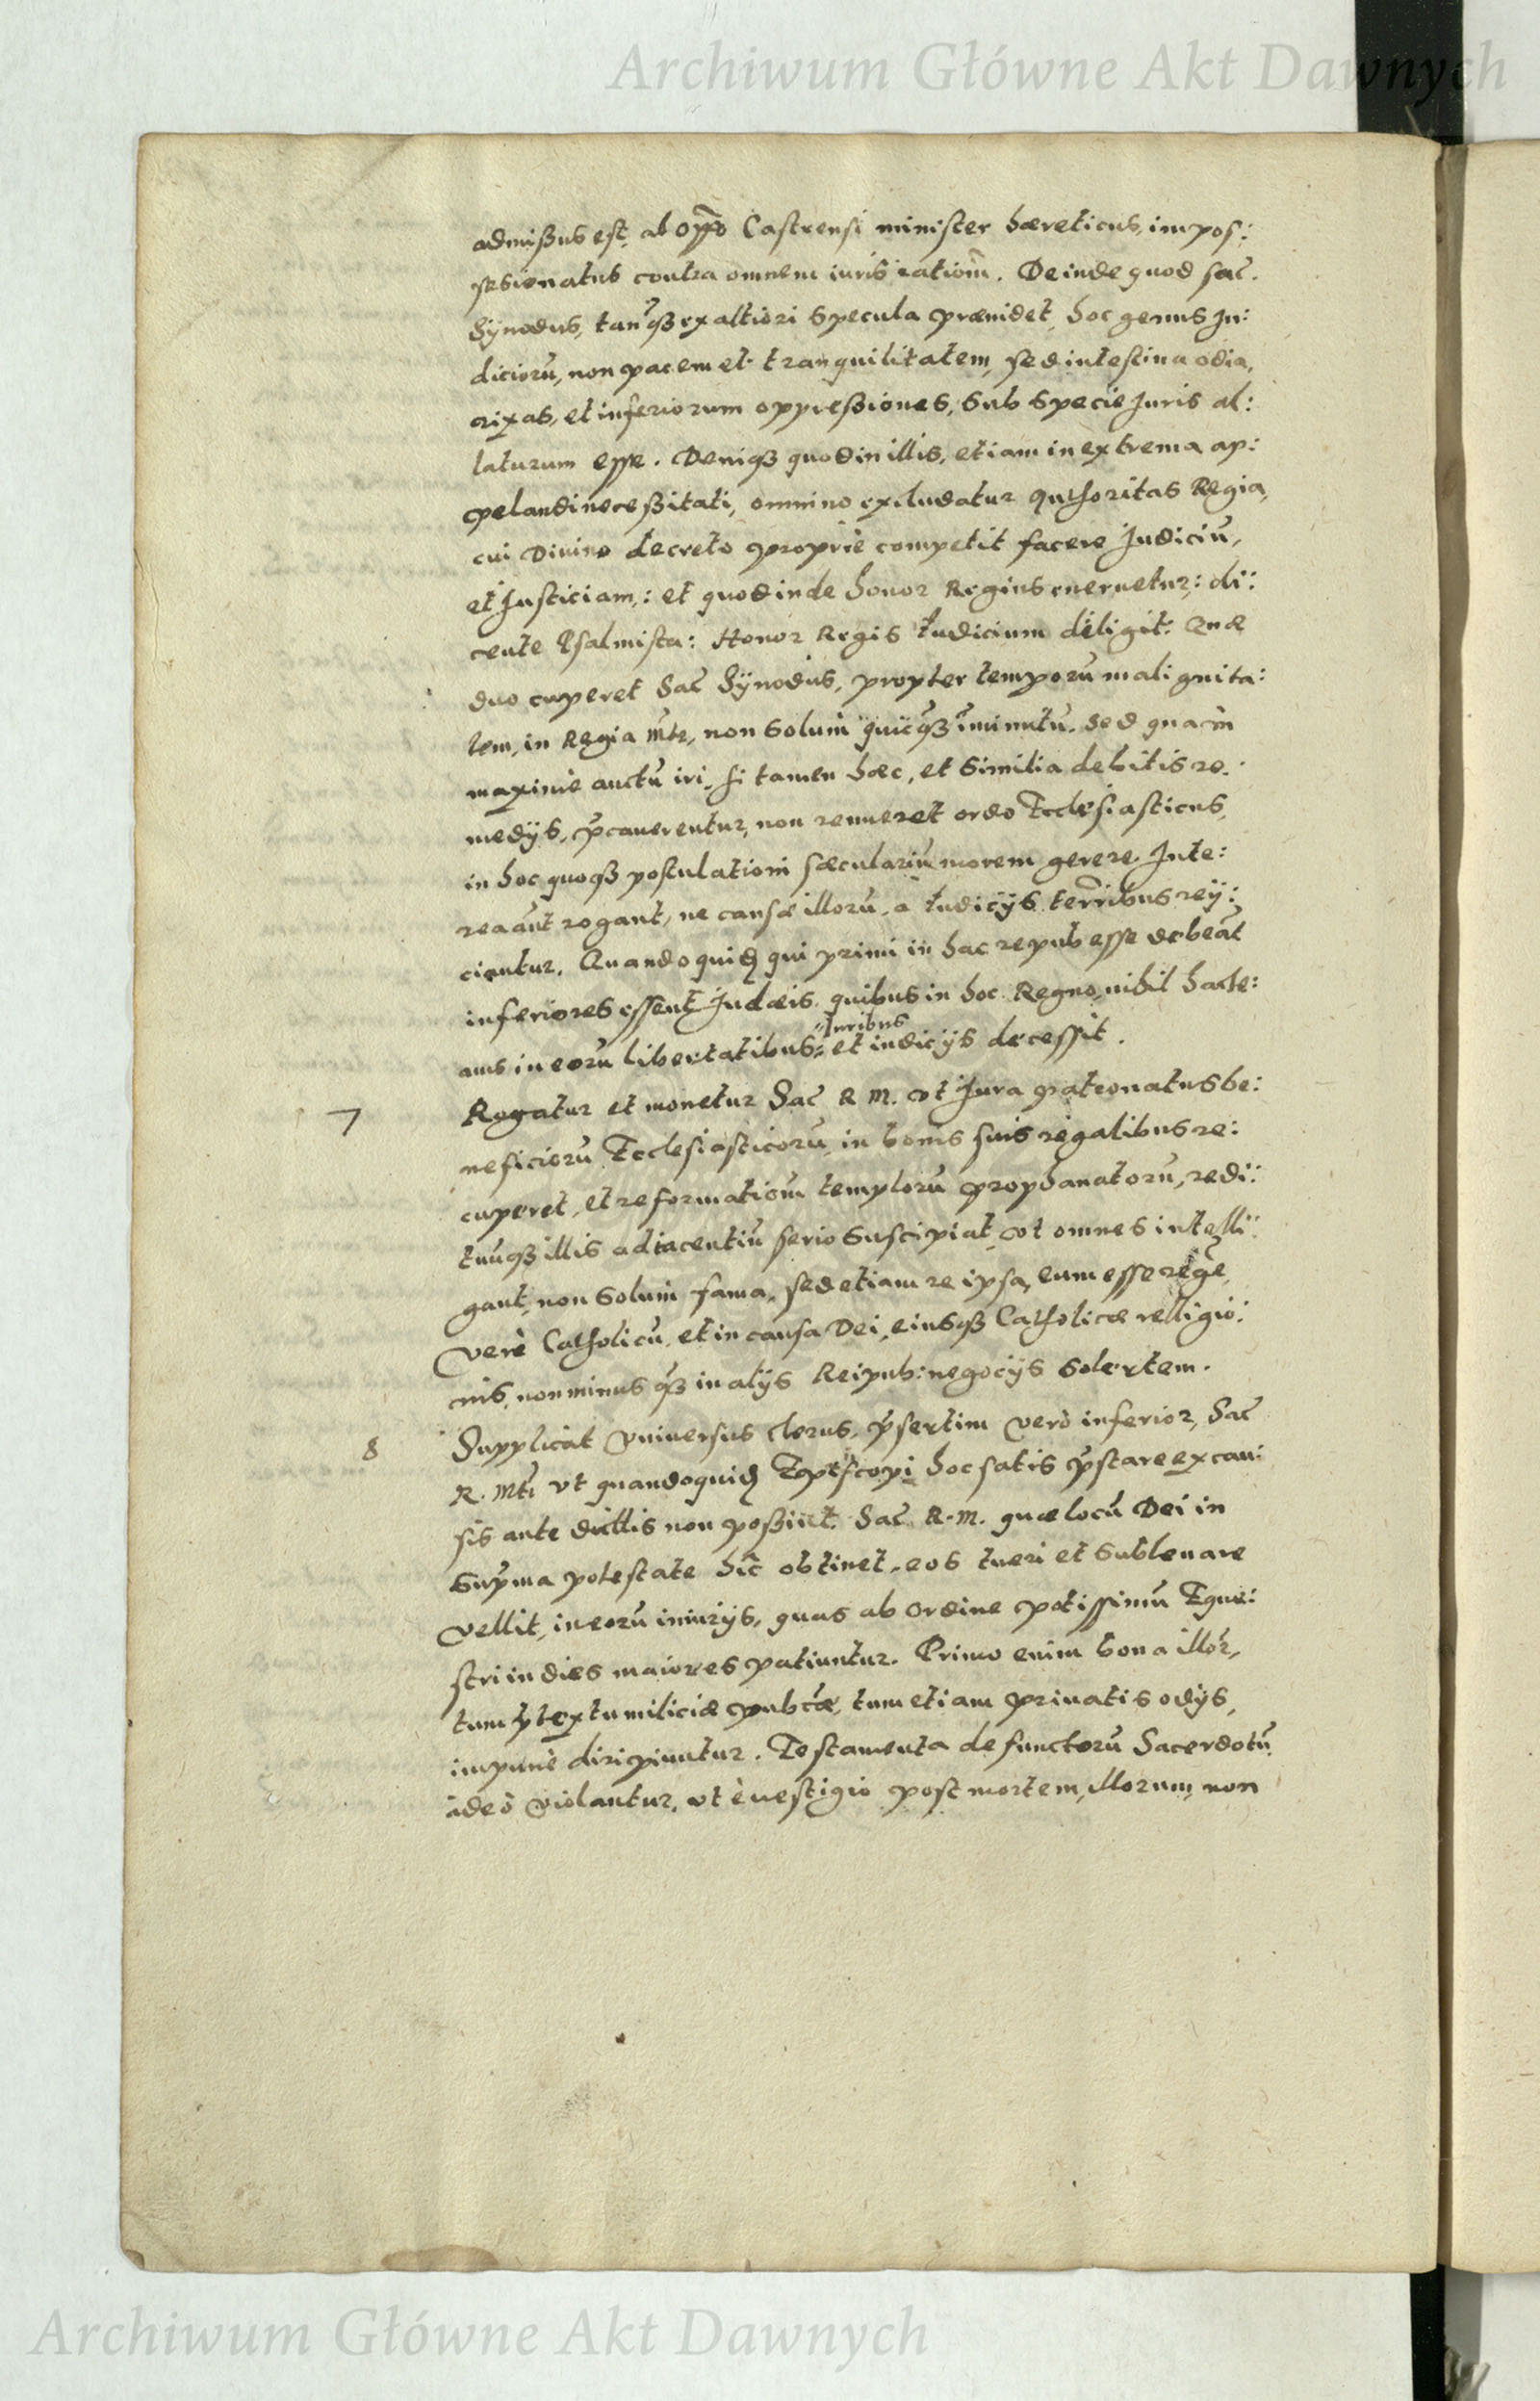 Archiwum Główne Akt Dawnych
admißus est, ab Oppō Castrensi minister hæreticus, impos:
sesionatus contra omnem iuris ratiōm. Deinde quod sac̄.
Synodus, tanq̄ȝ ex altiori specula prævidet, hoc genus Iu:
diciorū, non pacem et tranquilitatem, sed intestina odia,
rixas, et inferiorum oppreßiones, sub specie Iuris al:
laturum esse. Deniqȝ quod in illis, etiam in extrema ap:
pelandi neceßitati, omnino excludatur Authoritas Regia,
cui Divino decreto propriè competit facere Iudiciū,
et Iusticiam,: et quod inde honor Regius eneruetur,: di:
cente Psalmista: Honor Regis Iudicium diligit. Quæ
duo cuperet Sac̄ Synodus, propter temporū malignita:
tem, in Regia Mte, non solum quicq̄ȝ im̄inutū. sed quam
maximè auctū iri, si tamen hæc, et similia debitis re:
medÿs, p̄cauerentur, non renueret ordo Ecclesiasticus,
in hoc quoqȝ postulationi sæculariū morem gerere. Inte:
rea aūt rogant, ne causæ illorū, a Iudicÿs terr̄ibus reÿ:
ciantur. Quandoquidē qui primi in hac repub esse debeāt
inferiores essent Iudæis, quibus in hoc Regno, nihil hacte:
nus in eorū libertatibus, Iuribus et iudicÿs decessit.
7 Rogatur et monetur Sac̄ R M. vt Iura patronatus be:
neficiorū Ecclesiasticorū, in bonis suis regalibus re:
cuperet, et reformatiōm templorū prophanatorū, redi:
tuūqȝ illis adiacentiū serio suscipiat, vt omnes intelli:
gant, non solum fama, sed etiam re ipsa, eum esse regē
verè Catholicū, et in causa Dei, eiusqȝ Catholicæ relligio:
nis, non minus q̄ȝ in alÿs Reipub: negocÿs solertem.
8 Supplicat vniuersus clerus, p̄sertim verò inferior, Sac̄
R. Mti vt quandoquidē Episcopi hoc satis p̄stare ex cau:
sis ante dictis non poßint. Sac̄ R. M. quæ locū Dei in
sup̄ma potestate hic obtinet, eos tueri et subleuare
vellit, in eorū iniurÿs, quas ab ordine potissimū Eque:
stri in dies maiores patiuntur. Primo enim bona illor,
tum p̄textu miliciæ pub̄cæ, tum etiam priuatis odÿs,
impunè diripiuntur. Testamenta defunctorū Sacerdotū
adeò violantur, vt è uestigio post mortem, illorum, non
Archiwum Główne Akt Dawnych